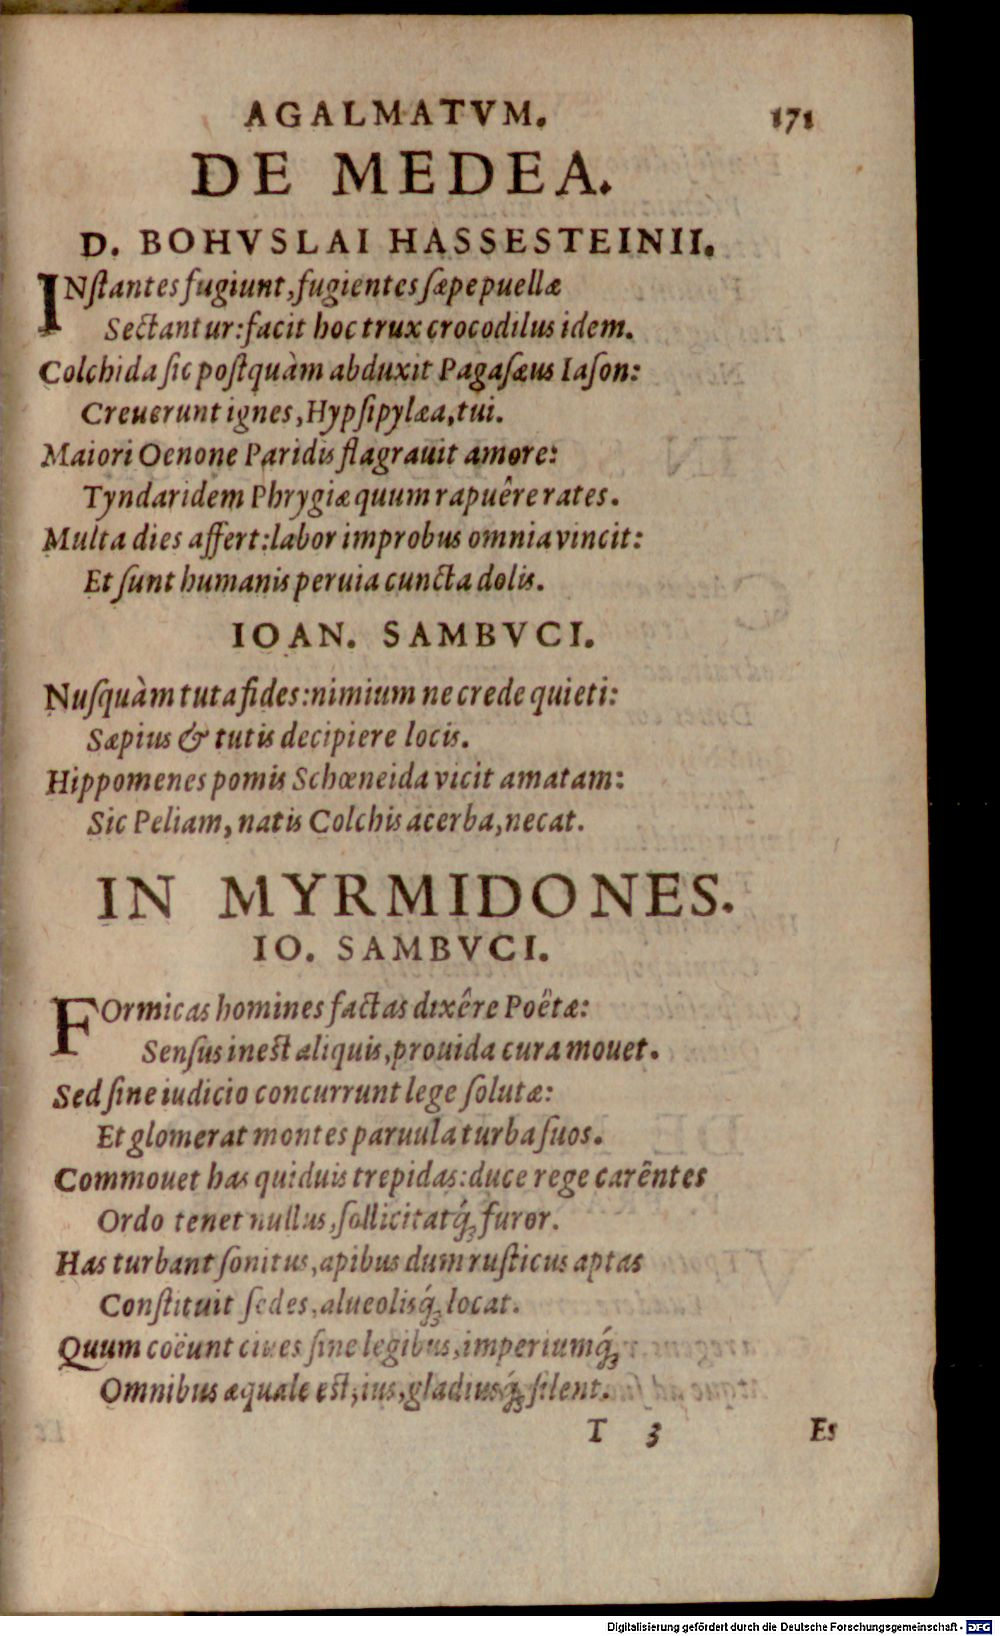 AGALMATVM. 171
DE MEDEA.
D. BOHVSLAI HASSESTEINII.
INſtantes fugiunt, fugientes ſæpe puellæ
Sectantur: facit hoc trux crocodilus idem.
Colchida ſic poſtquàm abduxit Pagaſæus Iaſon:
Creuerunt ignes, Hypſipylæa, tui.
Maiori Oenone Paridis flagrauit amore:
Tyndaridem Phrygiæ quum rapuêre rates.
Multa dies affert: labor improbus omnia vincit:
Et ſunt humanis peruia cuncta dolis.
IOAN. SAMBVCI.
Nuſquàm tuta fides: nimium ne crede quieti:
Sæpius & tutis decipiere locis.
Hippomenes pomis Schœneida vicit amatam:
Sic Peliam, natis Colchis acerba, necat.
IN MYRMIDONES.
IO. SAMBVCI.
FOrmicas homines factas dixêre Poëtæ:
Senſus ineſt aliquis, prouida cura mouet.
Sed ſine iudicio concurrunt lege ſolutæ:
Et glomerat montes paruula turba ſuos.
Commouet has quiduis trepidas: duce rege carêntes
Ordo tenet nullus, ſollicitatq́ꝫ furor.
Has turbant ſonitus, apibus dum ruſticus aptas
Conſtituit ſedes, alueoliſq́ꝫ locat.
Quum coëunt ciues ſine legibus, imperiumq́ꝫ
Omnibus æquale eſt, ius, gladiusq́ꝫ ſilent.
T 3 Es
Digitalisierung gefördert durch die Deutsche Forschungsgemeinschaft - DFG